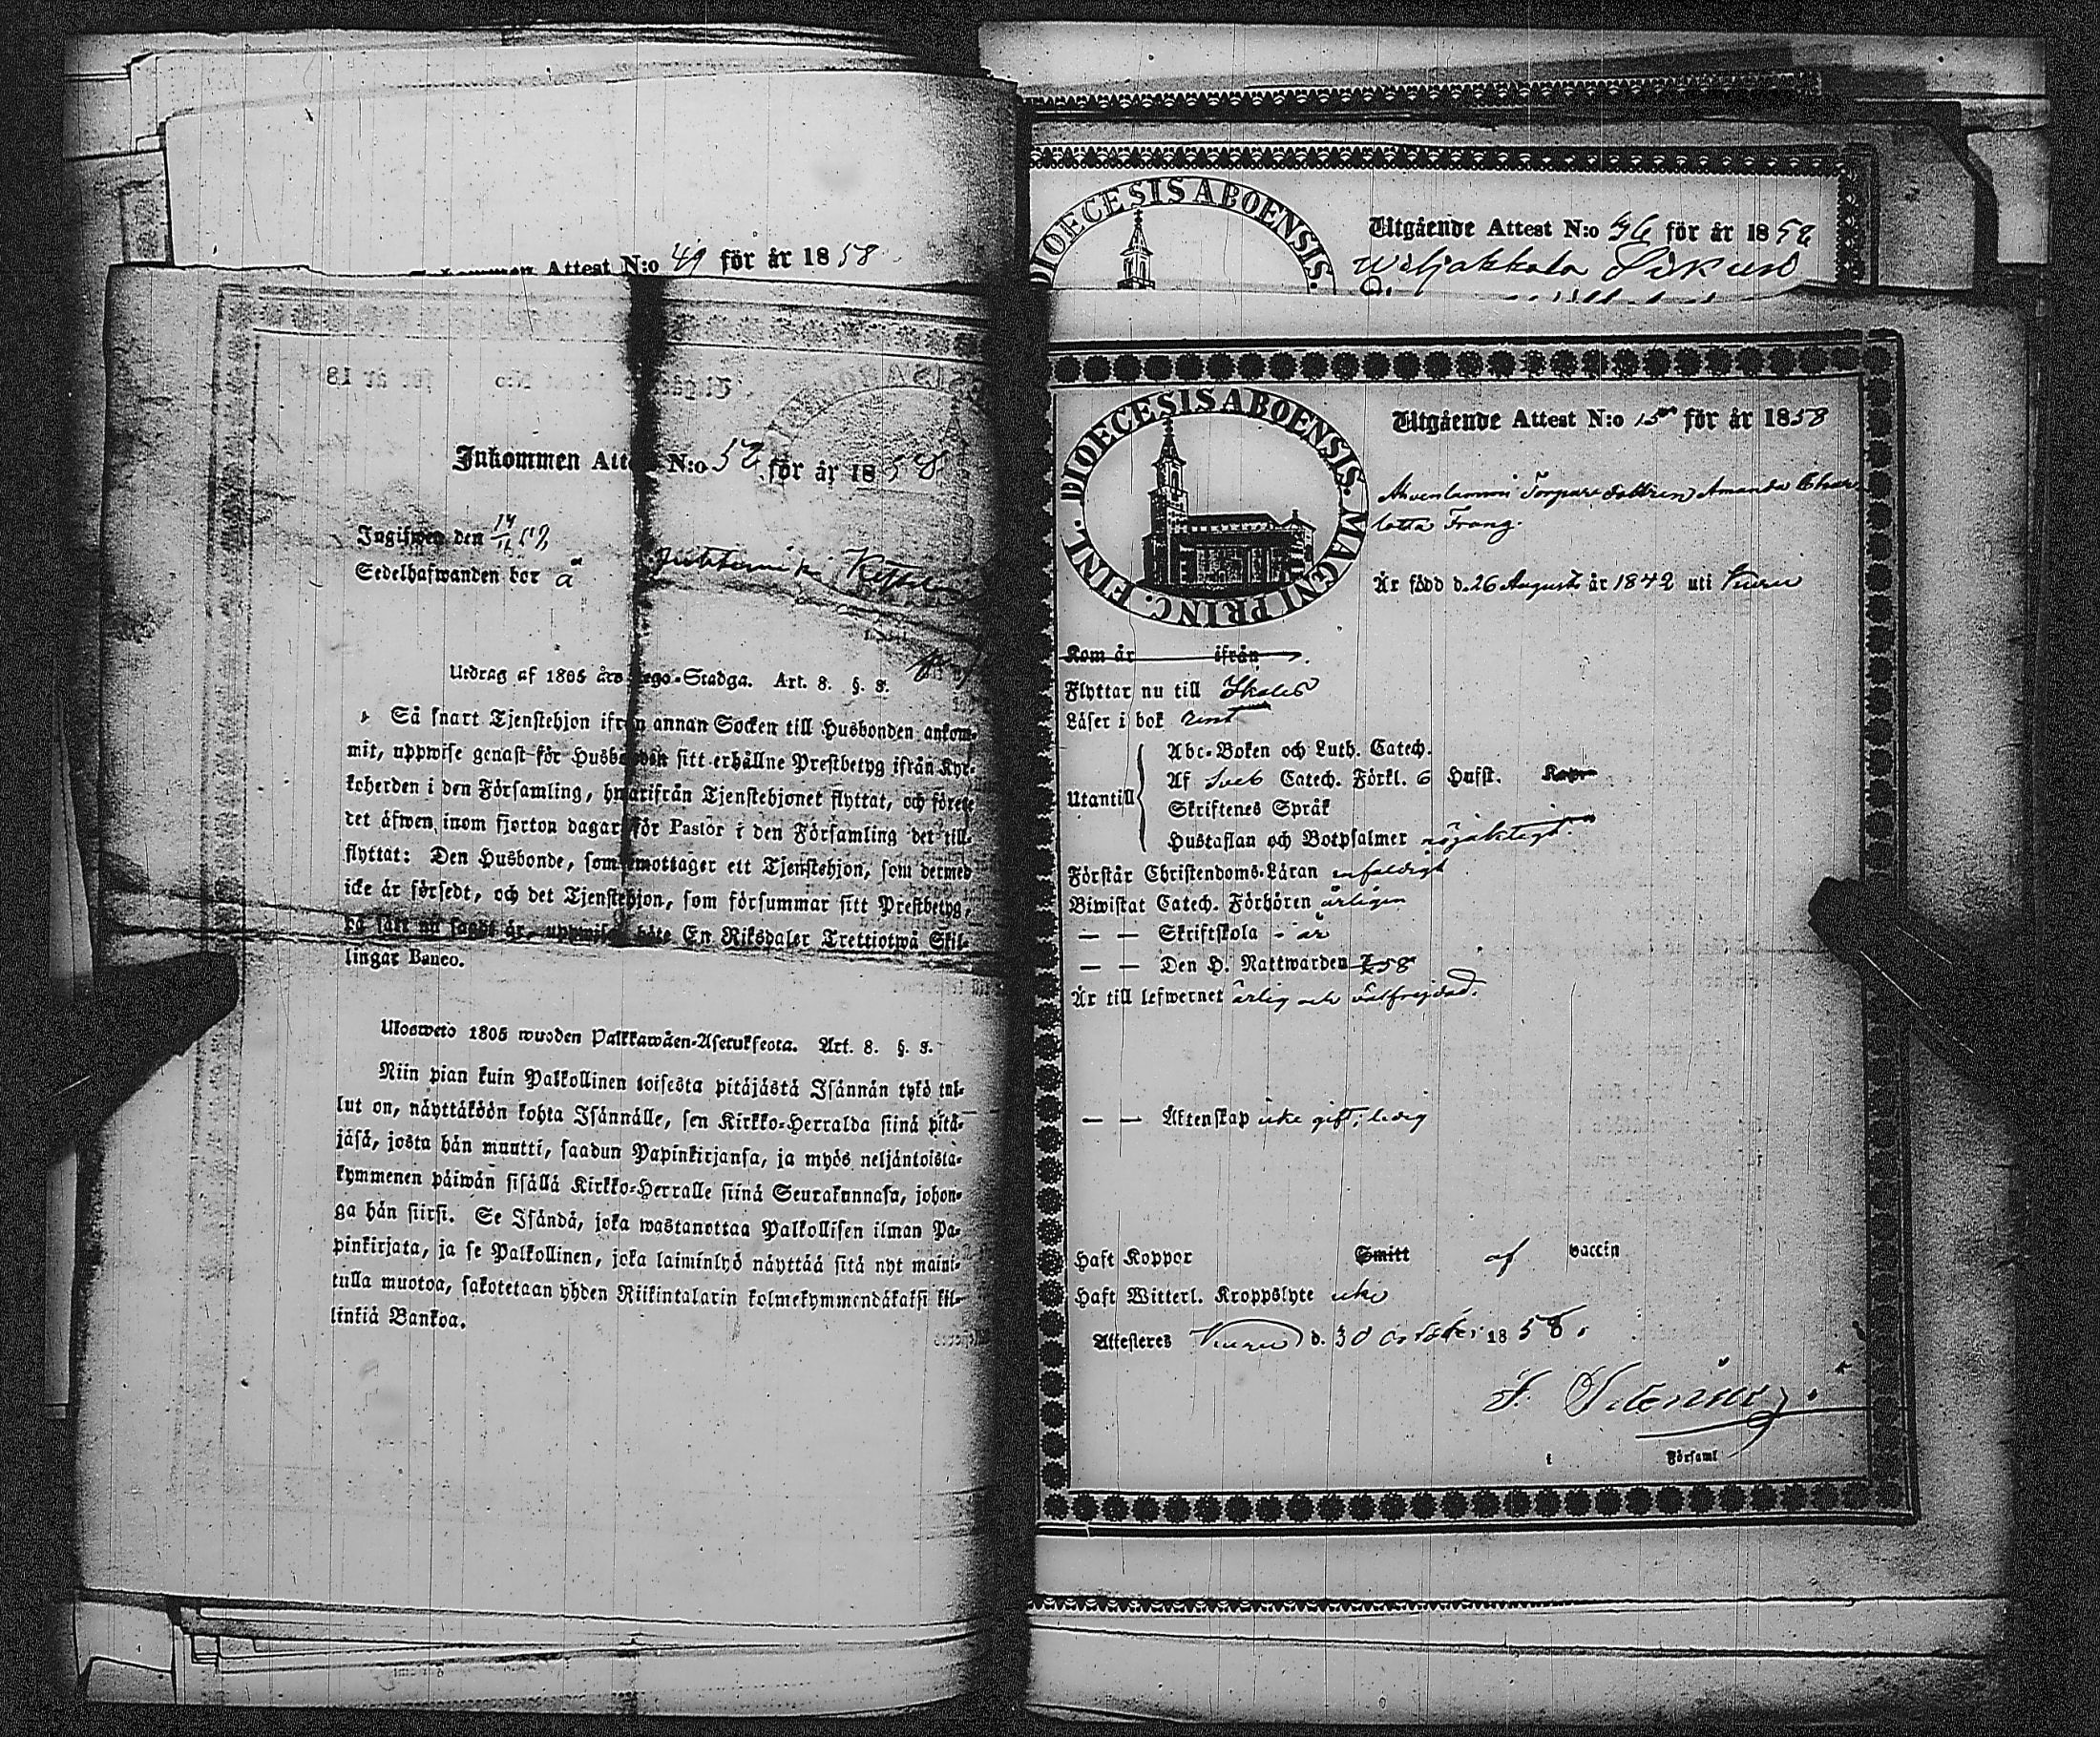 Attest N:o 49 för år 1858
Inkommen Att N:o 52 för år 1858
Ingifwen den 14/11 58
Sedelhafwanden bor å
Utdrag af 1805 års Lego-Stadga. Art. 8. §. 8.
Så snart Tjenstehjon ifrån annan Socken till Husbonden ankom-
mit, uppwise genast för Husbonden sitt erhållne Prestbetyg ifrån Kyr-
koherden i den Församling, hwarifrån Tjenstehjonet flyttat, och förete
det äfwen inom fjorton dagar för Pastor i den Församling det till-
flyttat: Den Husbonde, som emottager ett Tjenstehjon, som dermed
icke är försedt, och det Tjenstehjon, som försummar sitt Prestbetyg,
på sätt nu sagdt är, uppwisa, böte En Riksdaler Trettiotwå Skil-
lingar Banco.
Ulosweto 1805 wuoden Palkkawäen-Asetuksesta. Art. 8. §. 8.
Niin pian kuin Palkollinen toisesta pitäjästä Isännän tykö tul-
lut on, näyttäköön kohta Isännälle, sen Kirkko-Herralda siinä pitä-
jäsä, josta hän muutti, saadun Papinkirjansa, ja myös neljäntoista-
kymmenen päiwän sisällä Kirkko-Herralle siinä Seurakunnasa, johon-
ga hän siirsi. Se Isändä, joka wastanottaa Palkollisen ilman Pa-
pinkirjata, ja se Palkollinen, joka laiminlyö näyttää sitä nyt maini-
tulla muotoa, sakotetaan yhden Riikintalarin kolmekymmendäkaksi kil-
linkiä Bankoa.
DIOECESIS ABOENSIS.
Utgående Attest N:o 36 för år 1858
Wiljakkala
DIOECESIS ABOENSIS. MAGNI PRINC. FINL.
Utgående Attest N:o 15 för år 1858
Ahvenlammi Torpare dottren Amanda Char
lotta Frang.
Är född d. 26 Augusti år 1842 uti Kuru
Kom år ifrån
Flyttar nu till Ikalis
Läser i bok rent
Utantill
Abc-Boken och Luth. Catech.
Af Sveb Catech. Förkl. 6 Hufst.
Skriftenes Språk
Hustaflan och Botpsalmer nöjaktigt
Förstår Christendoms-Läran enfaldigt
Biwistat Catech. Förhören årligen
— — Skriftskola - är
— — Den H. Nattwarden 58
Är till lefwernet ärlig och välfrejdad.
— — Äktenskap icke gift; ledig
Haft Koppor Smitt af vaccin
Haft Witterl. Kroppslyte icke
Attesteres Kuru d. 30 october 1858.
i Församl